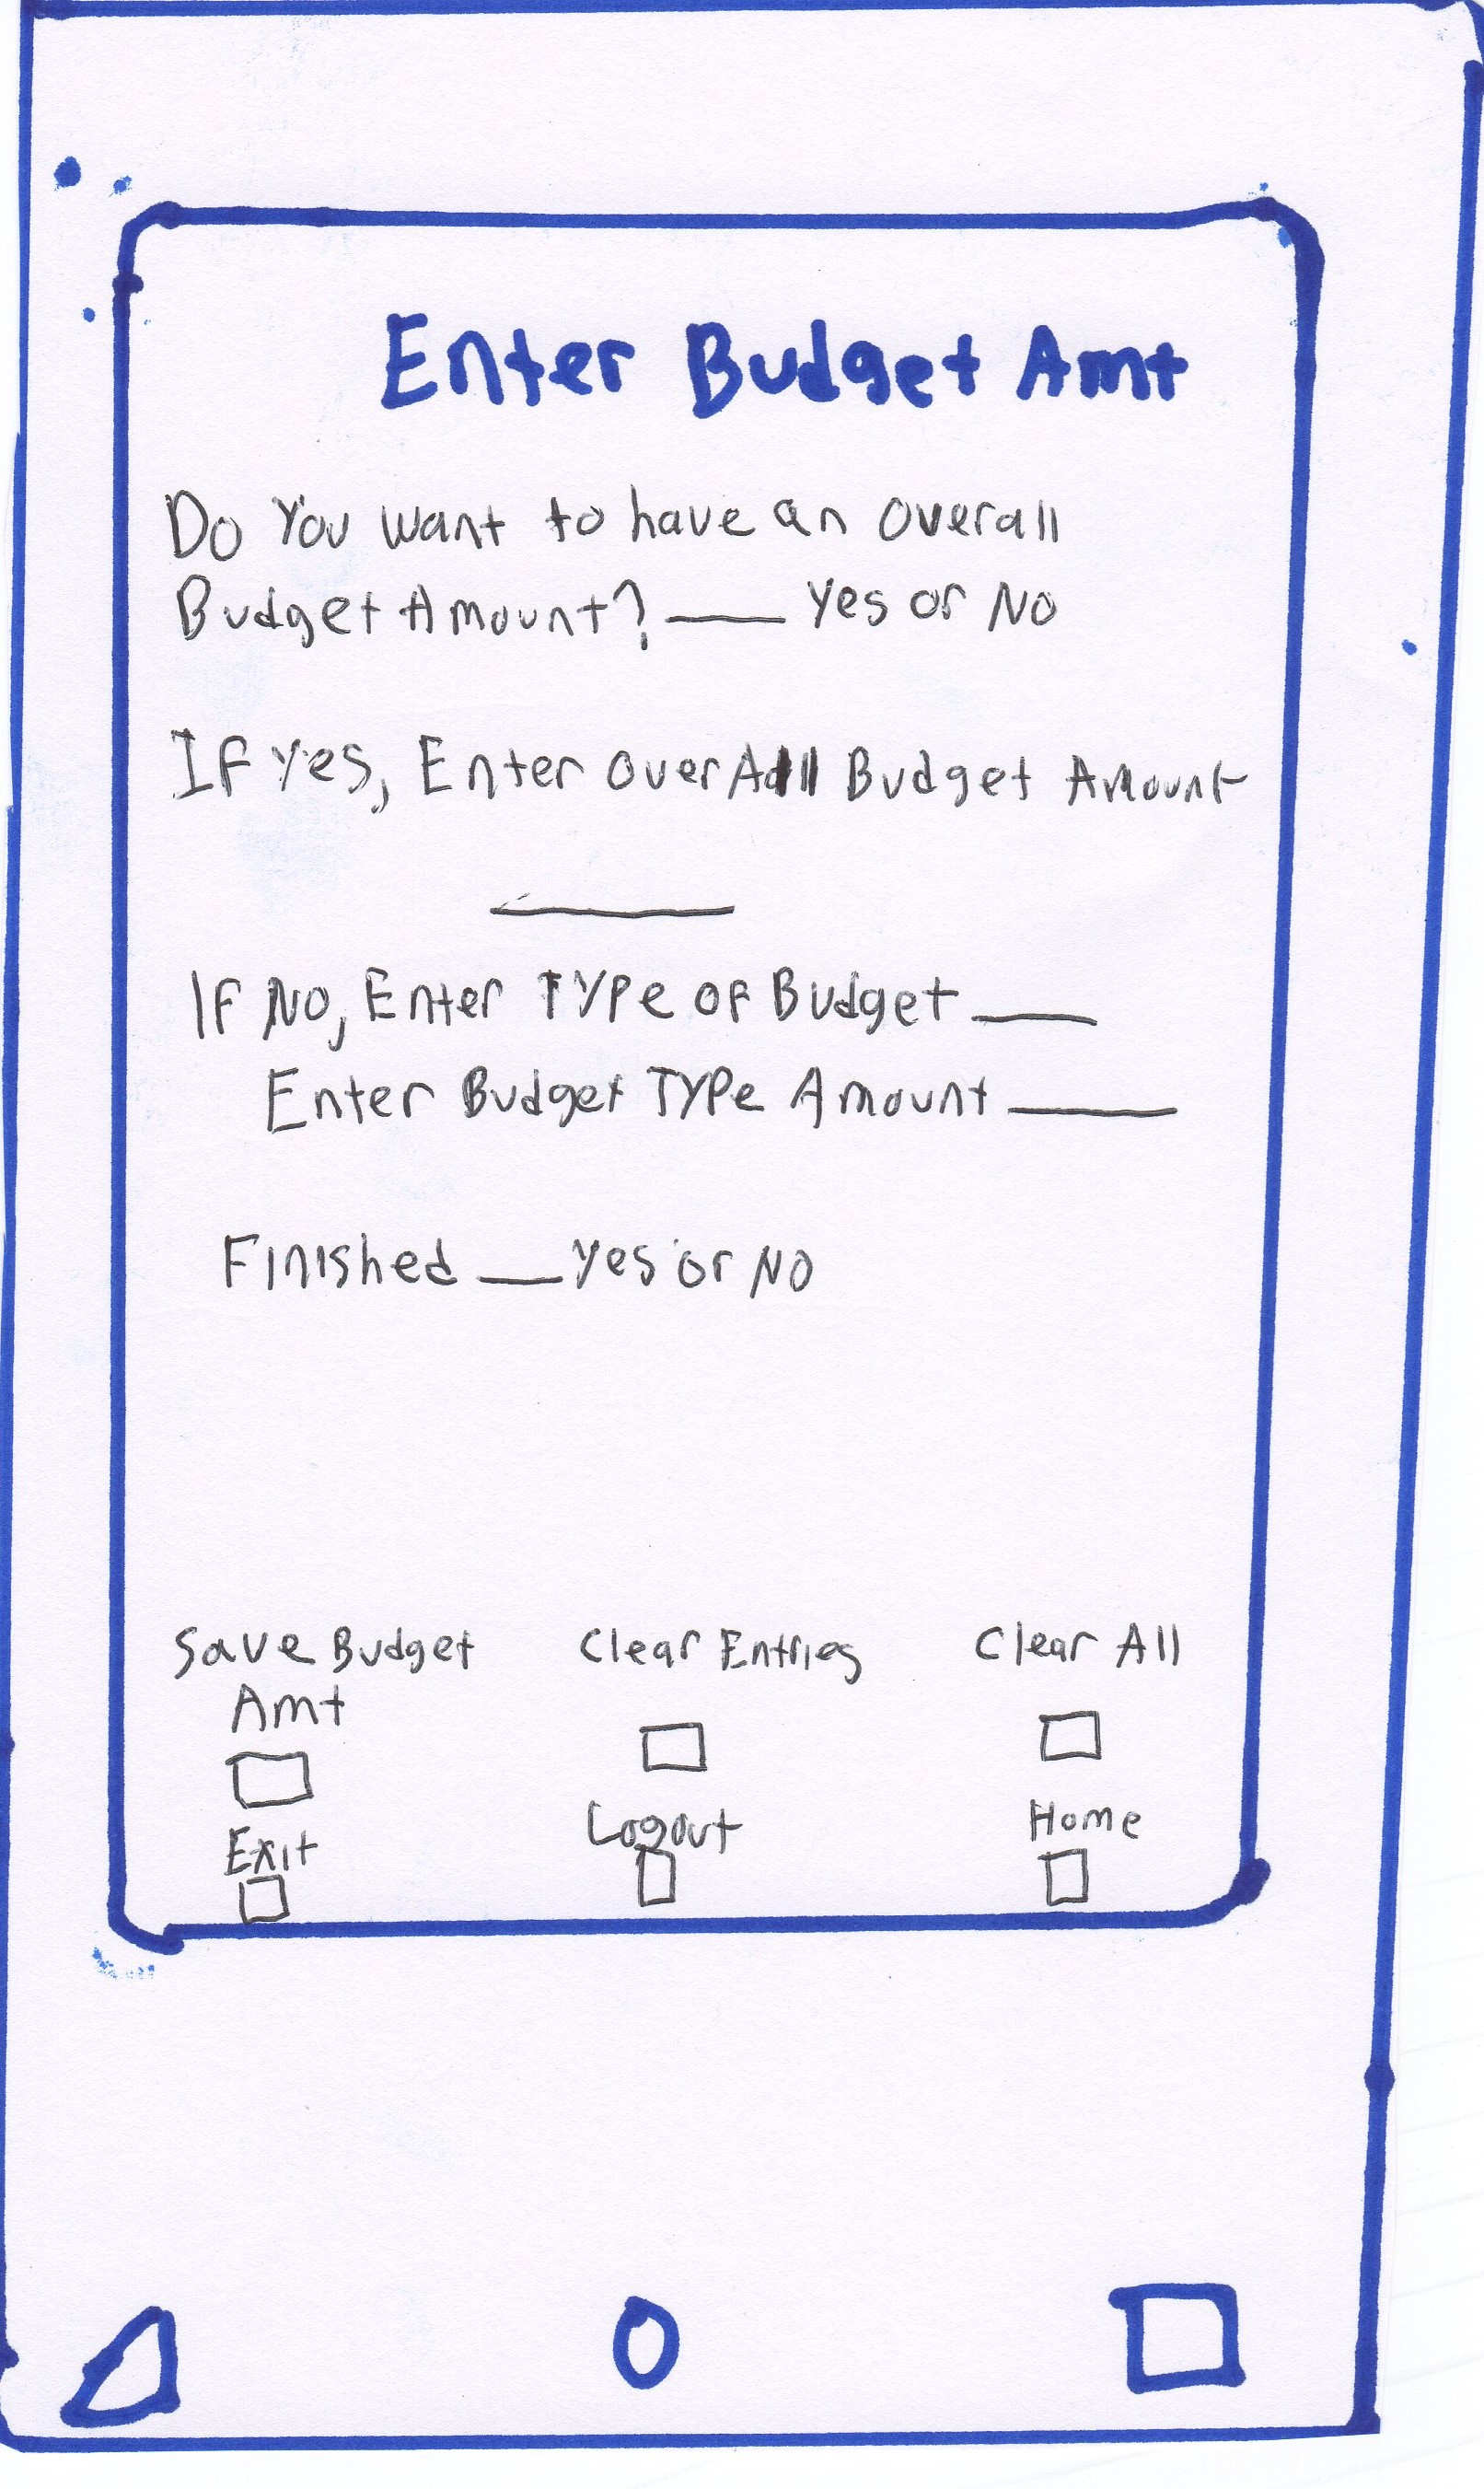 Enter Budget Amt
Do You want to have an overall
Budget Amount? ____ Yes or No
If Yes, Enter OverAll Budget Amount
____
If No, Enter Type of Budget ____
Enter Budget Type Amount ____
Finished ____ Yes or No
Save Budget Clear Entries Clear All
Amt
Exit Logout Home